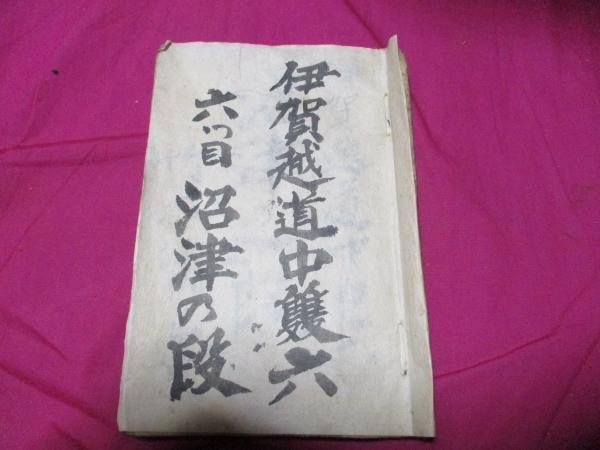 伊賀越道中雙六
六ツ目 沼津の段